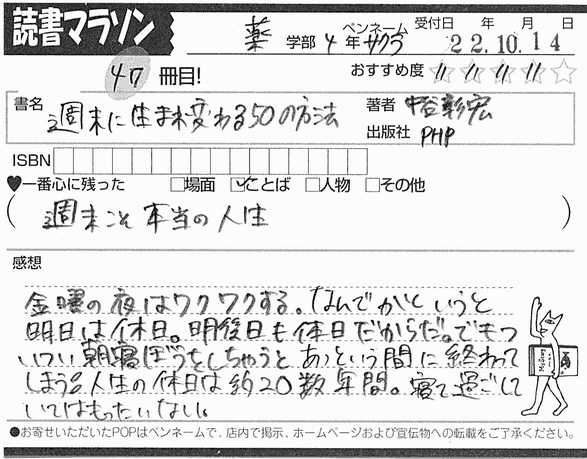 読書マラソン
薬 学部 4 年 ペンネーム サクラ 受付日 年 月 日 22.10.14
47 冊目!
おすすめ度 ☆☆☆☆☆
書名 週末に生まれ変わる50の方法
著者 中谷彰宏
出版社 PHP
ISBN
♥一番心に残った □場面 ☑ことば □人物 □その他
(週末こそ本当の人生)
感想
金曜の夜はワクワクする。なんでかというと
明日は休日。明後日も休日だからだ。でもつ
いつい朝寝ぼうをしちゃうとあっという間に終わって
しまう。人生の休日は約20数年間。寝て過ごして
いてはもったいない。
●お寄せいただいたPOPはペンネームで、店内で掲示、ホームページおよび宣伝物への転載をご了承ください。